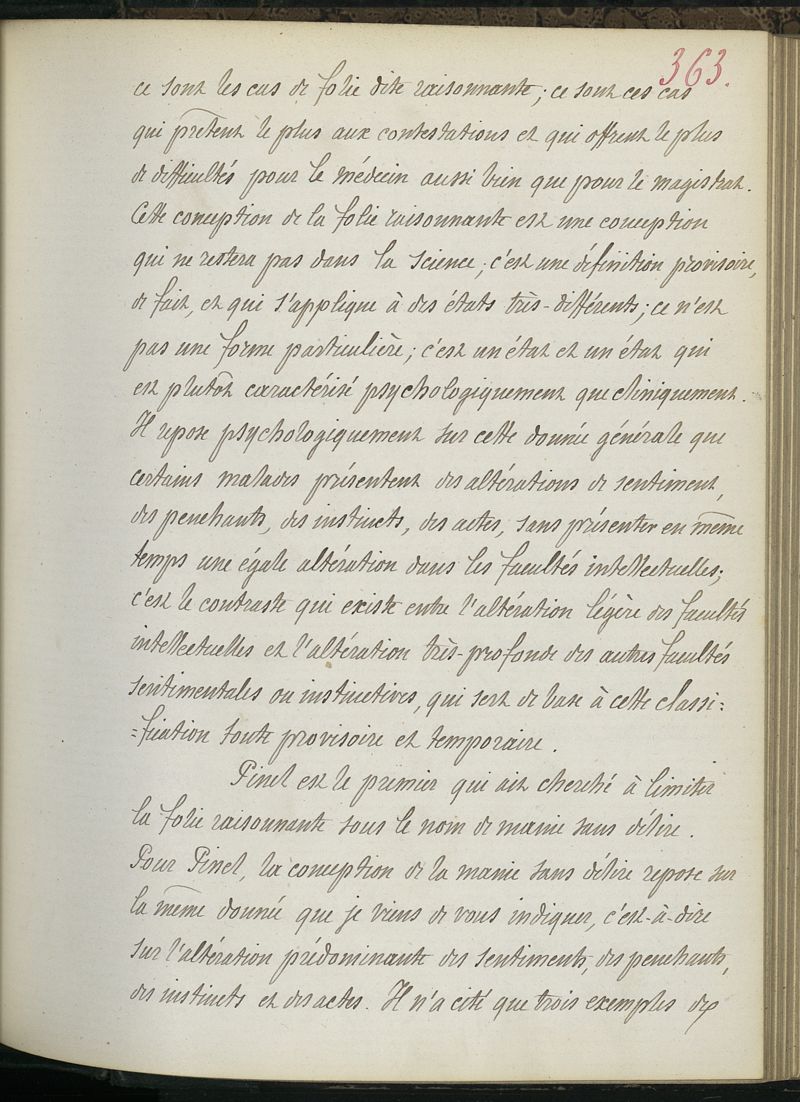 363.
ce sont les cas de folie dite raisonnante; ce sont ces cas
qui prêtent le plus aux contestations et qui offrent le plus
de difficultés pour le médecin aussi bien que pour le magistrat.
Cette conception de la folie raisonnante est une conception
qui ne restera pas dans la science; c'est une définition provisoire,
de fait, et qui s'applique à des états très-différents; ce n'est
pas une forme particulière; c'est un état et un état qui
est plutôt caractérisé psychologiquement que cliniquement.
Il repose psychologiquement sur cette donnée générale que
certains malades présentent des altérations de sentiment,
des penchants, des instincts, des actes, sans présenter en même
temps une égale altération dans les facultés intellectuelles;
c'est le contraste qui existe entre l'altération légère des facultés
intellectuelles et l'altération très-profonde des autres facultés
sentimentales ou instinctives, qui sert de base à cette classi=
=fication toute provisoire et temporaire.
Pinel est le premier qui ait cherché à limiter
la folie raisonnante sous le nom de manie sans délire.
Pour Pinel, la conception de la manie sans délire repose sur
la même donnée que je viens de vous indiquer, c'est-à-dire
sur l'altération prédominante des sentiments, des penchants,
des instincts et des actes. Il n'a cité que trois exemples de